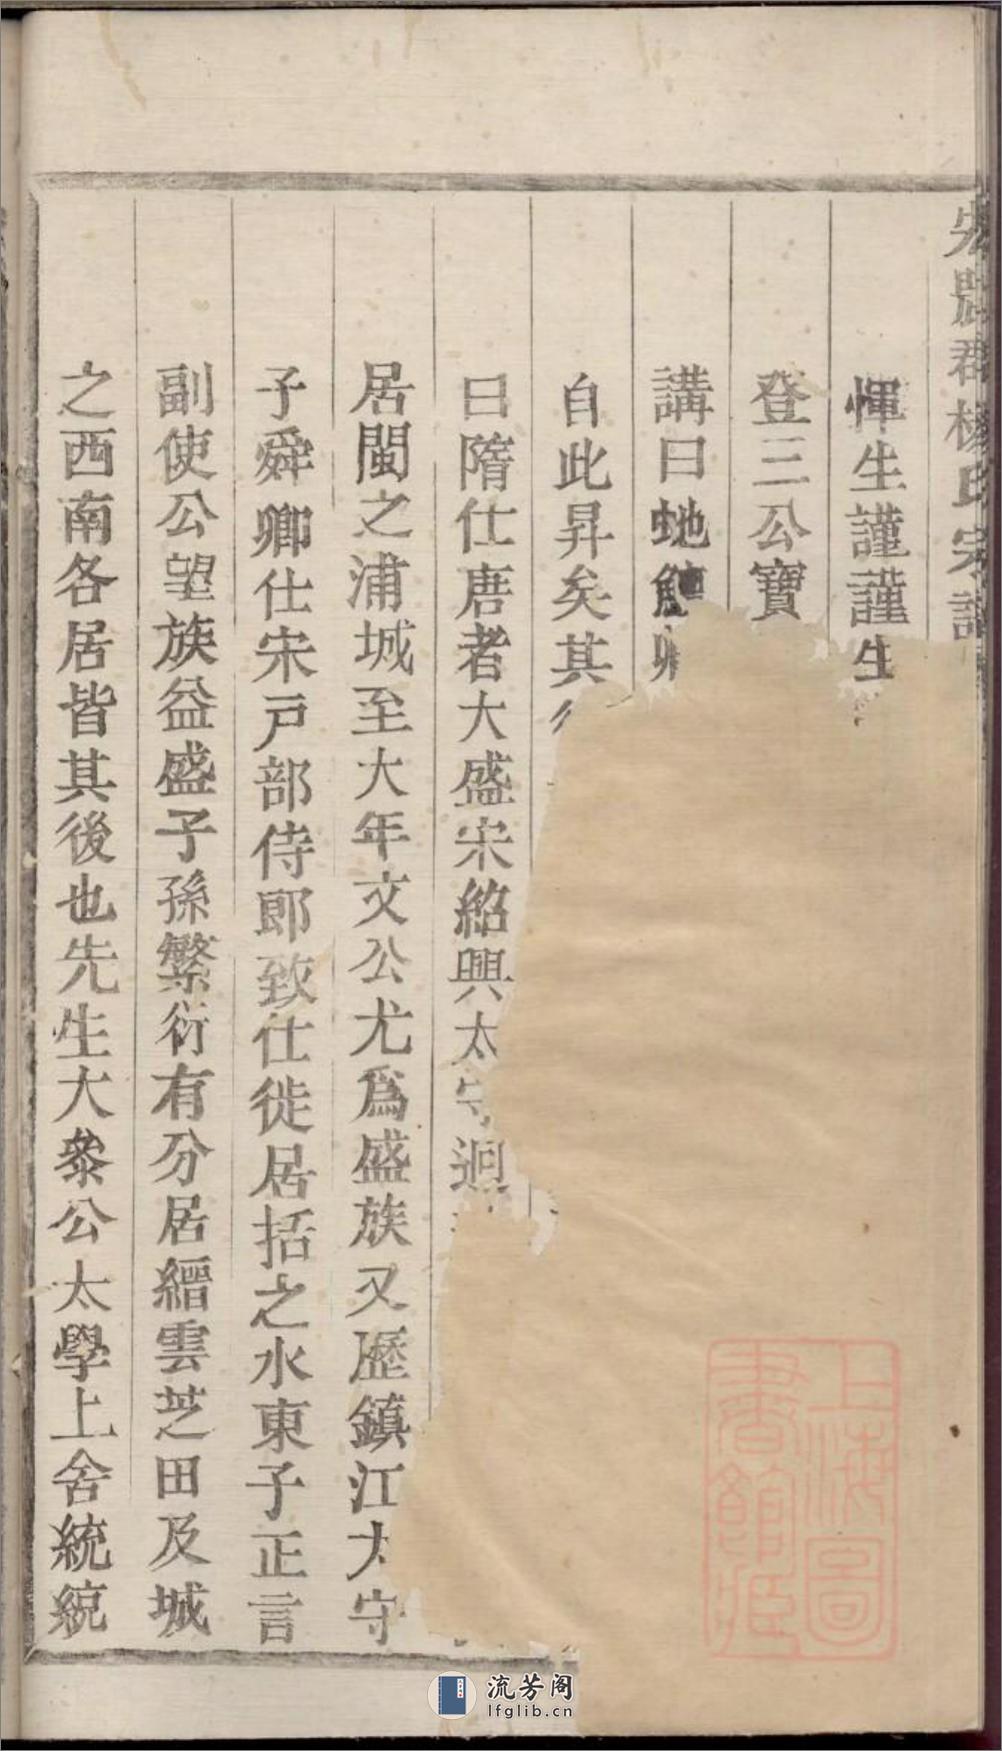 宏農郡楊氏宗譜
惲生謹謹生
登三公寶
講曰虵
自此昇矣其後
曰隋仕唐者大盛宋紹興太守迥
居閩之浦城至大年文公尤爲盛族又歷鎮江太守
子舜卿仕宋戸部侍郎致仕徙居括之水東子正言
副使公望族益盛子孫繁衍有分居縉雲芝田及城
之西南各居皆其後也先生大叅公太學上舍統統
上海圖書館藏
流芳阁
lfglib.cn